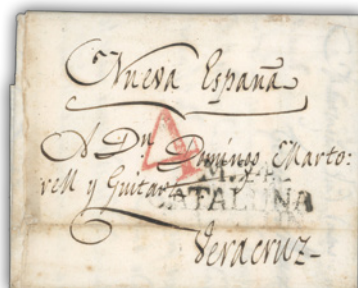 Nueva España
A Dn. Domingo Marto:
rell y Guitart
CATALUÑA
Veracruz